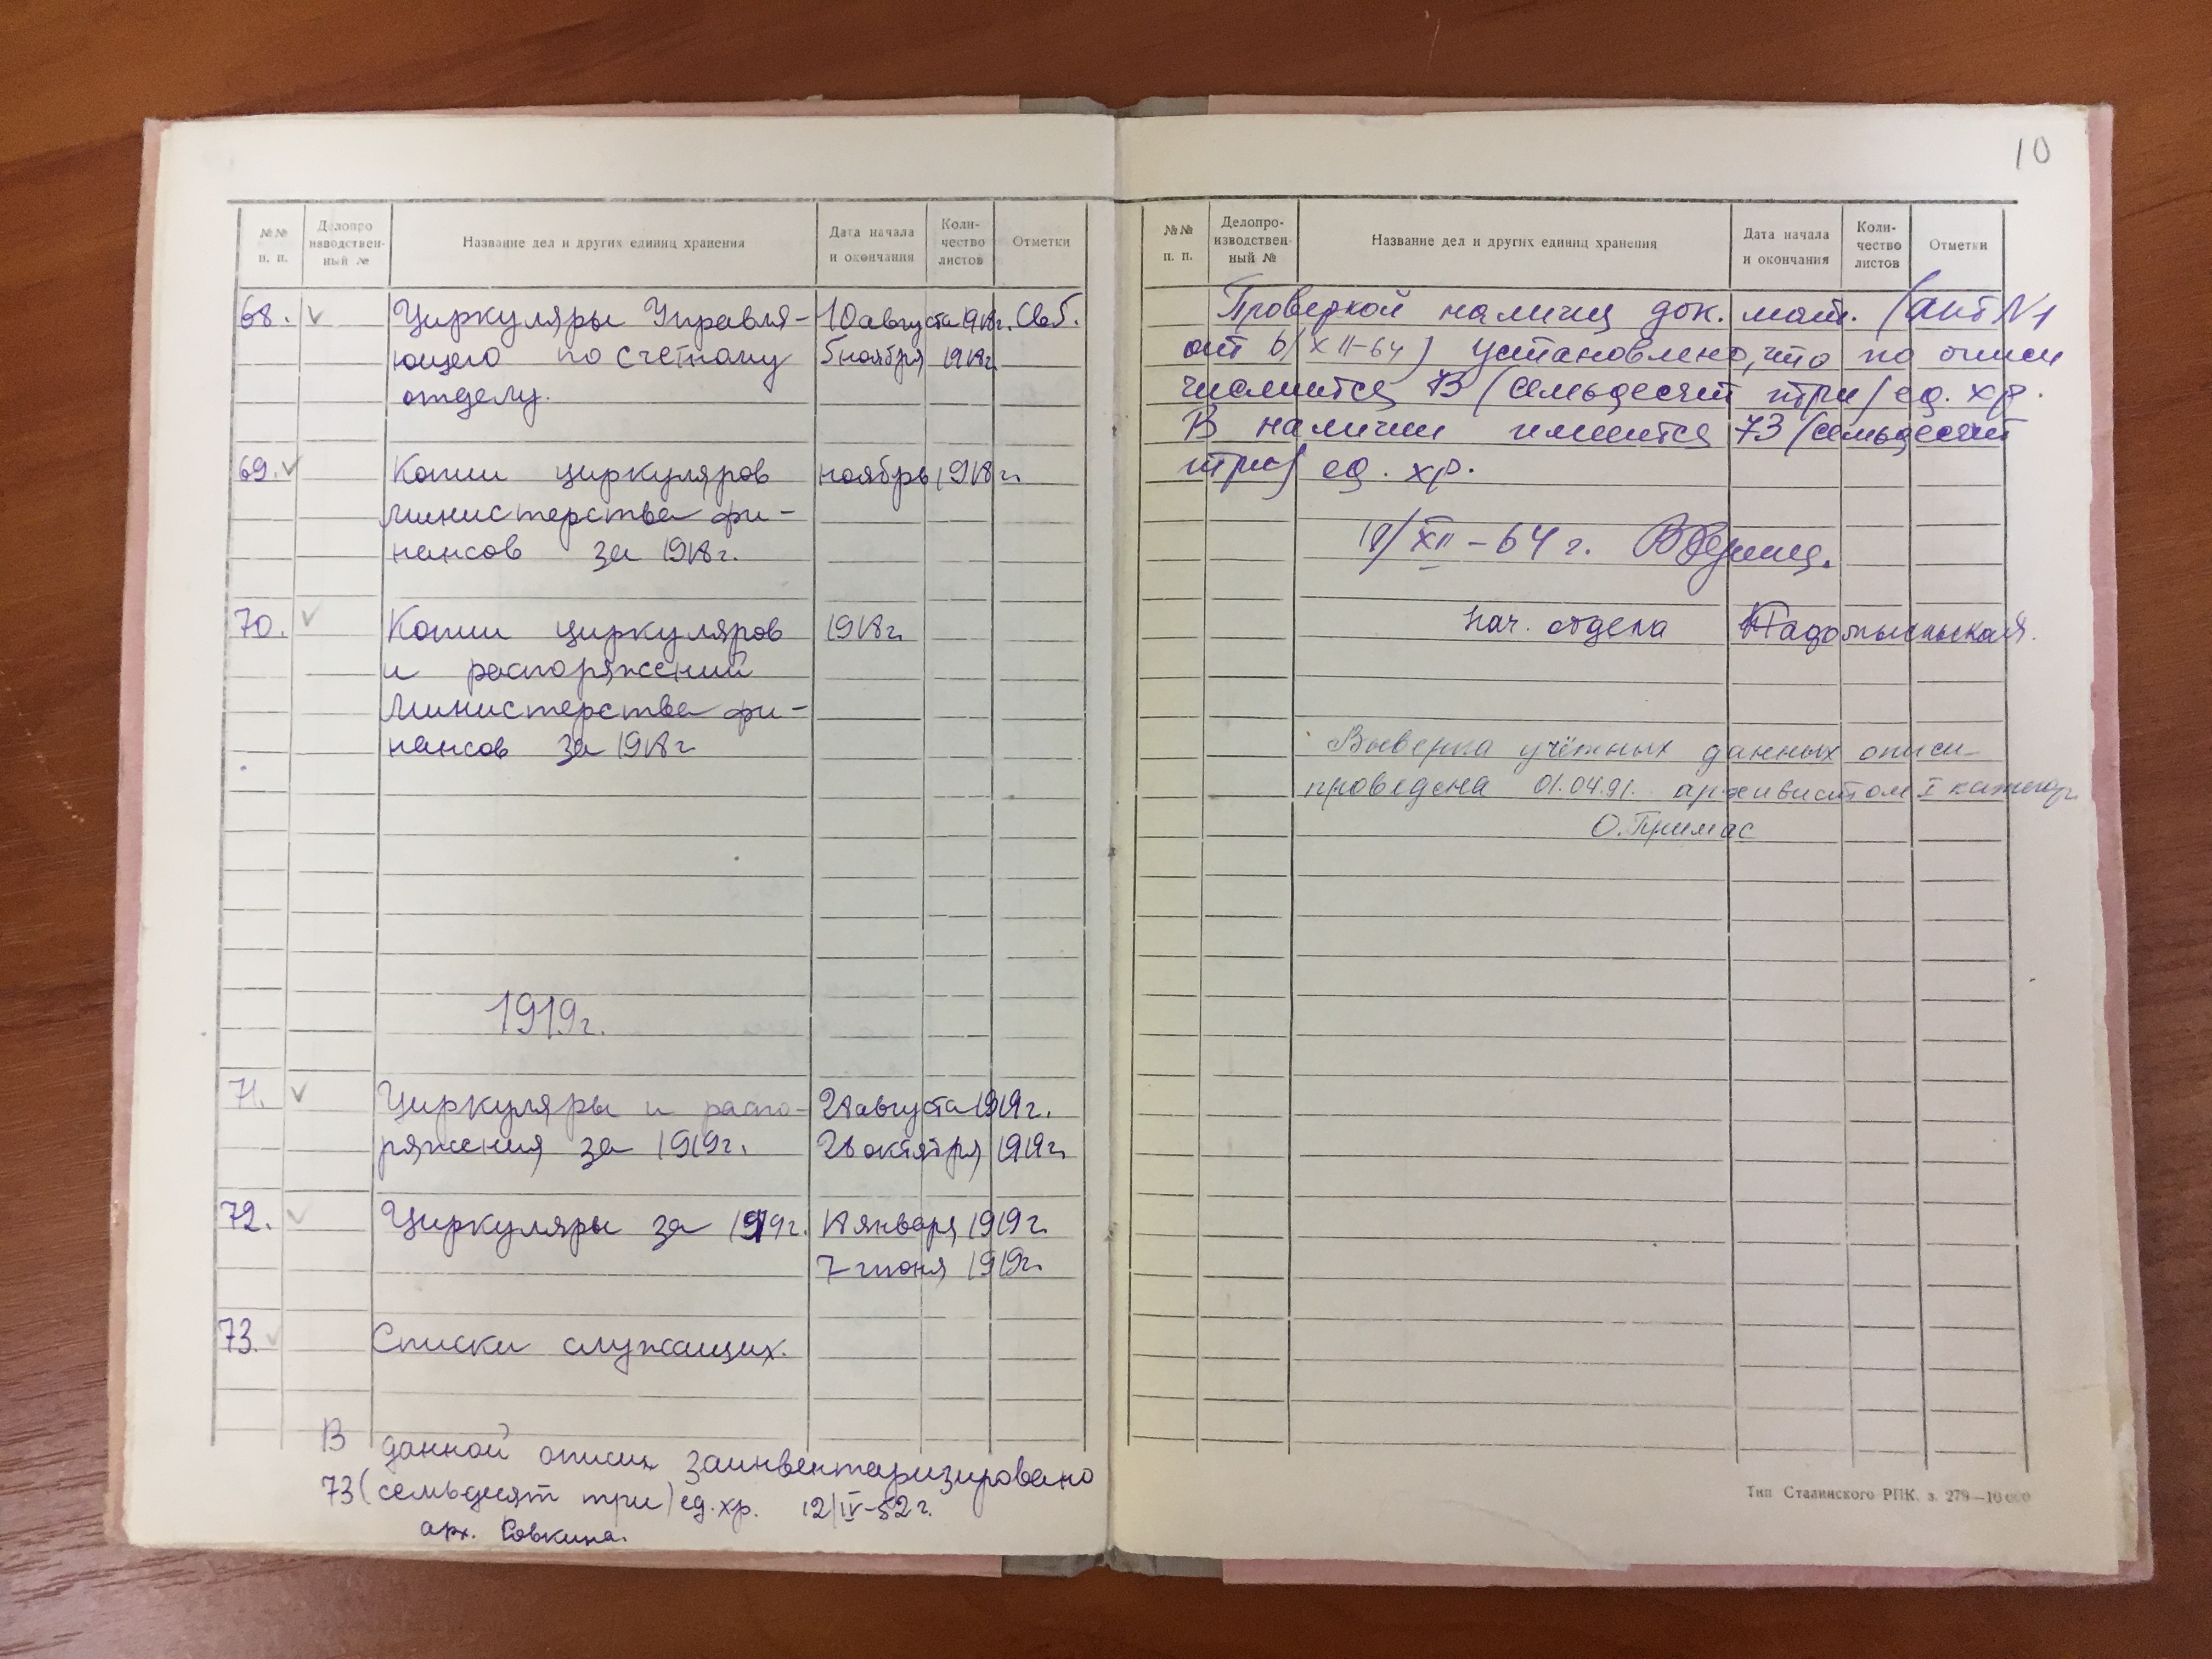 №№ п. п.
Делопро изводствен- ный №
Название дел и других единиц хранения
Дата начала и окончания
Коли- чество листов
Отметки
68. Циркуляры Управля- 10 августа 1918г. Св. 5.
ющего по счетному 5 ноября 1918г.
отделу.
69. Копии циркуляров ноябрь 1918 г.
министерства фи-
нансов за 1918г.
70. Копии циркуляров 1918г.
и распоряжений
министерства фи-
нансов за 1918г
1919г.
71. Циркуляры и распо- 28 августа 1919г.
ряжения за 1919г. 28 октября 1919г.
72. Циркуляры за 1919г. 18 января 1919г.
7 июня 1919г.
73. Списки служащих.
В данной описи заинвентаризировано
73 (семьдесят три) ед. хр. 12/IV-52 г.
арх. Совкина.
10
№№ п. п.
Делопро- изводствен- ный №
Название дел и других единиц хранения
Дата начала и окончания
Коли- чество листов
Отметки
Проверкой наличия док. мат. (акт №1
от 6/XII-64) установлено, что по описи
числится 73 (семьдесят три) ед. хр.
В наличии имеется 73 (семьдесят
три) ед. хр.
/XII-64 г.
Нач. отдела
Выверка учётных данных описи
проведена 01.04.91. архивистом I категор
О. Примас
Тип Сталинского РПК. з. 279—10000